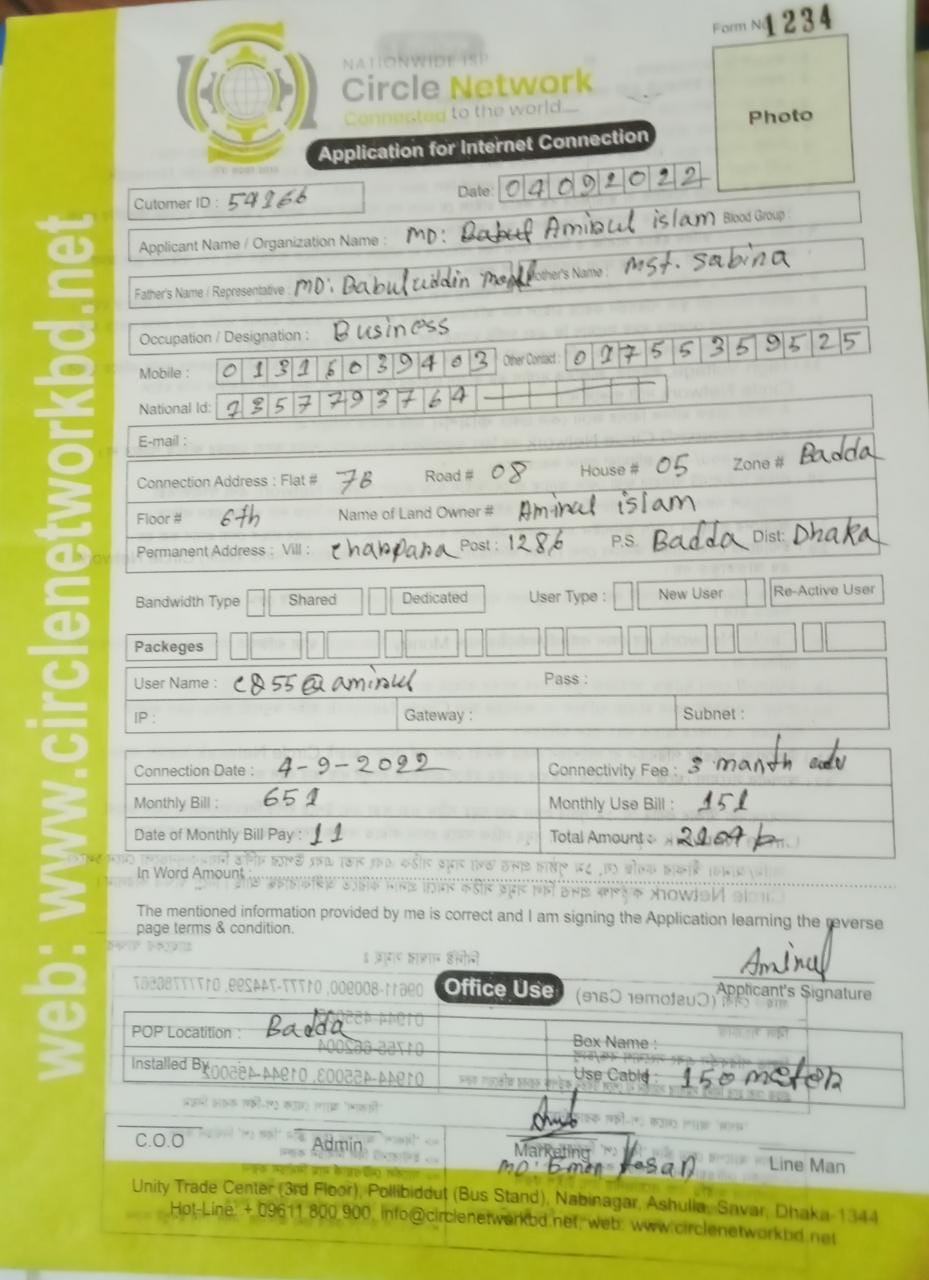 Form No 1234
NATIONWIDE ISP
Circle Network
Connected to the world....
Photo
Application for Internet Connection
web: www.circlenetworkbd.net
Cutomer ID : 54166
Date: 04092022
Applicant Name / Organization Name : MD: Aminul islam Blood Group :
Father's Name / Representative : MD: Babuluddin Mother's Name : Mst. Sabina
Occupation / Designation : Business
Mobile : 01316039403 Other Contact : 01755359525
National Id: 2357793764
E-mail :
Connection Address : Flat # 7B Road # 08 House # 05 Zone # Badda
Floor # 6th Name of Land Owner # Aminul islam
Permanent Address : Vill : Post : 1286 P.S. Badda Dist: Dhaka
Bandwidth Type Shared Dedicated User Type : New User Re-Active User
Packeges
User Name : Pass :
IP : Gateway : Subnet :
Connection Date : 4-9-2022 Connectivity Fee : 3 manth adv
Monthly Bill : 651 Monthly Use Bill : 151
Date of Monthly Bill Pay : 11 Total Amount :
In Word Amount :
The mentioned information provided by me is correct and I am signing the Application learning the reverse
page terms & condition.
Aminul
Applicant's Signature
Office Use
POP Locatition : Badda Box Name :
Installed By Use Cable : 150 meter
C.O.O Admin Marketing Line Man
MD: Emon Hasan
Unity Trade Center (3rd Floor), Pollibiddut (Bus Stand), Nabinagar, Ashulia, Savar, Dhaka-1344
Hot-Line: + 09611 800 900, info@circlenetwarkbd.net, web: www.circlenetworkbd.net